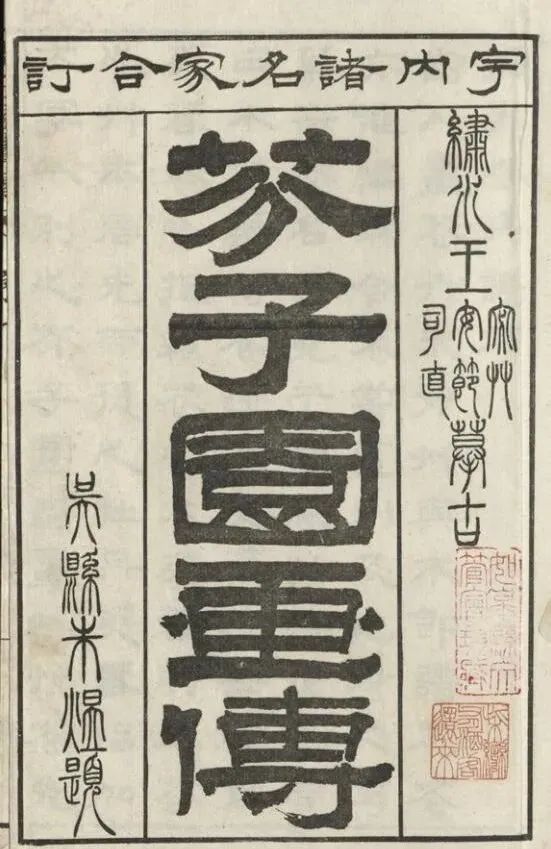 宇內諸名家合訂
繡水王宓艸安節司直摹古
芥子園畫傳
吳縣朱煴題